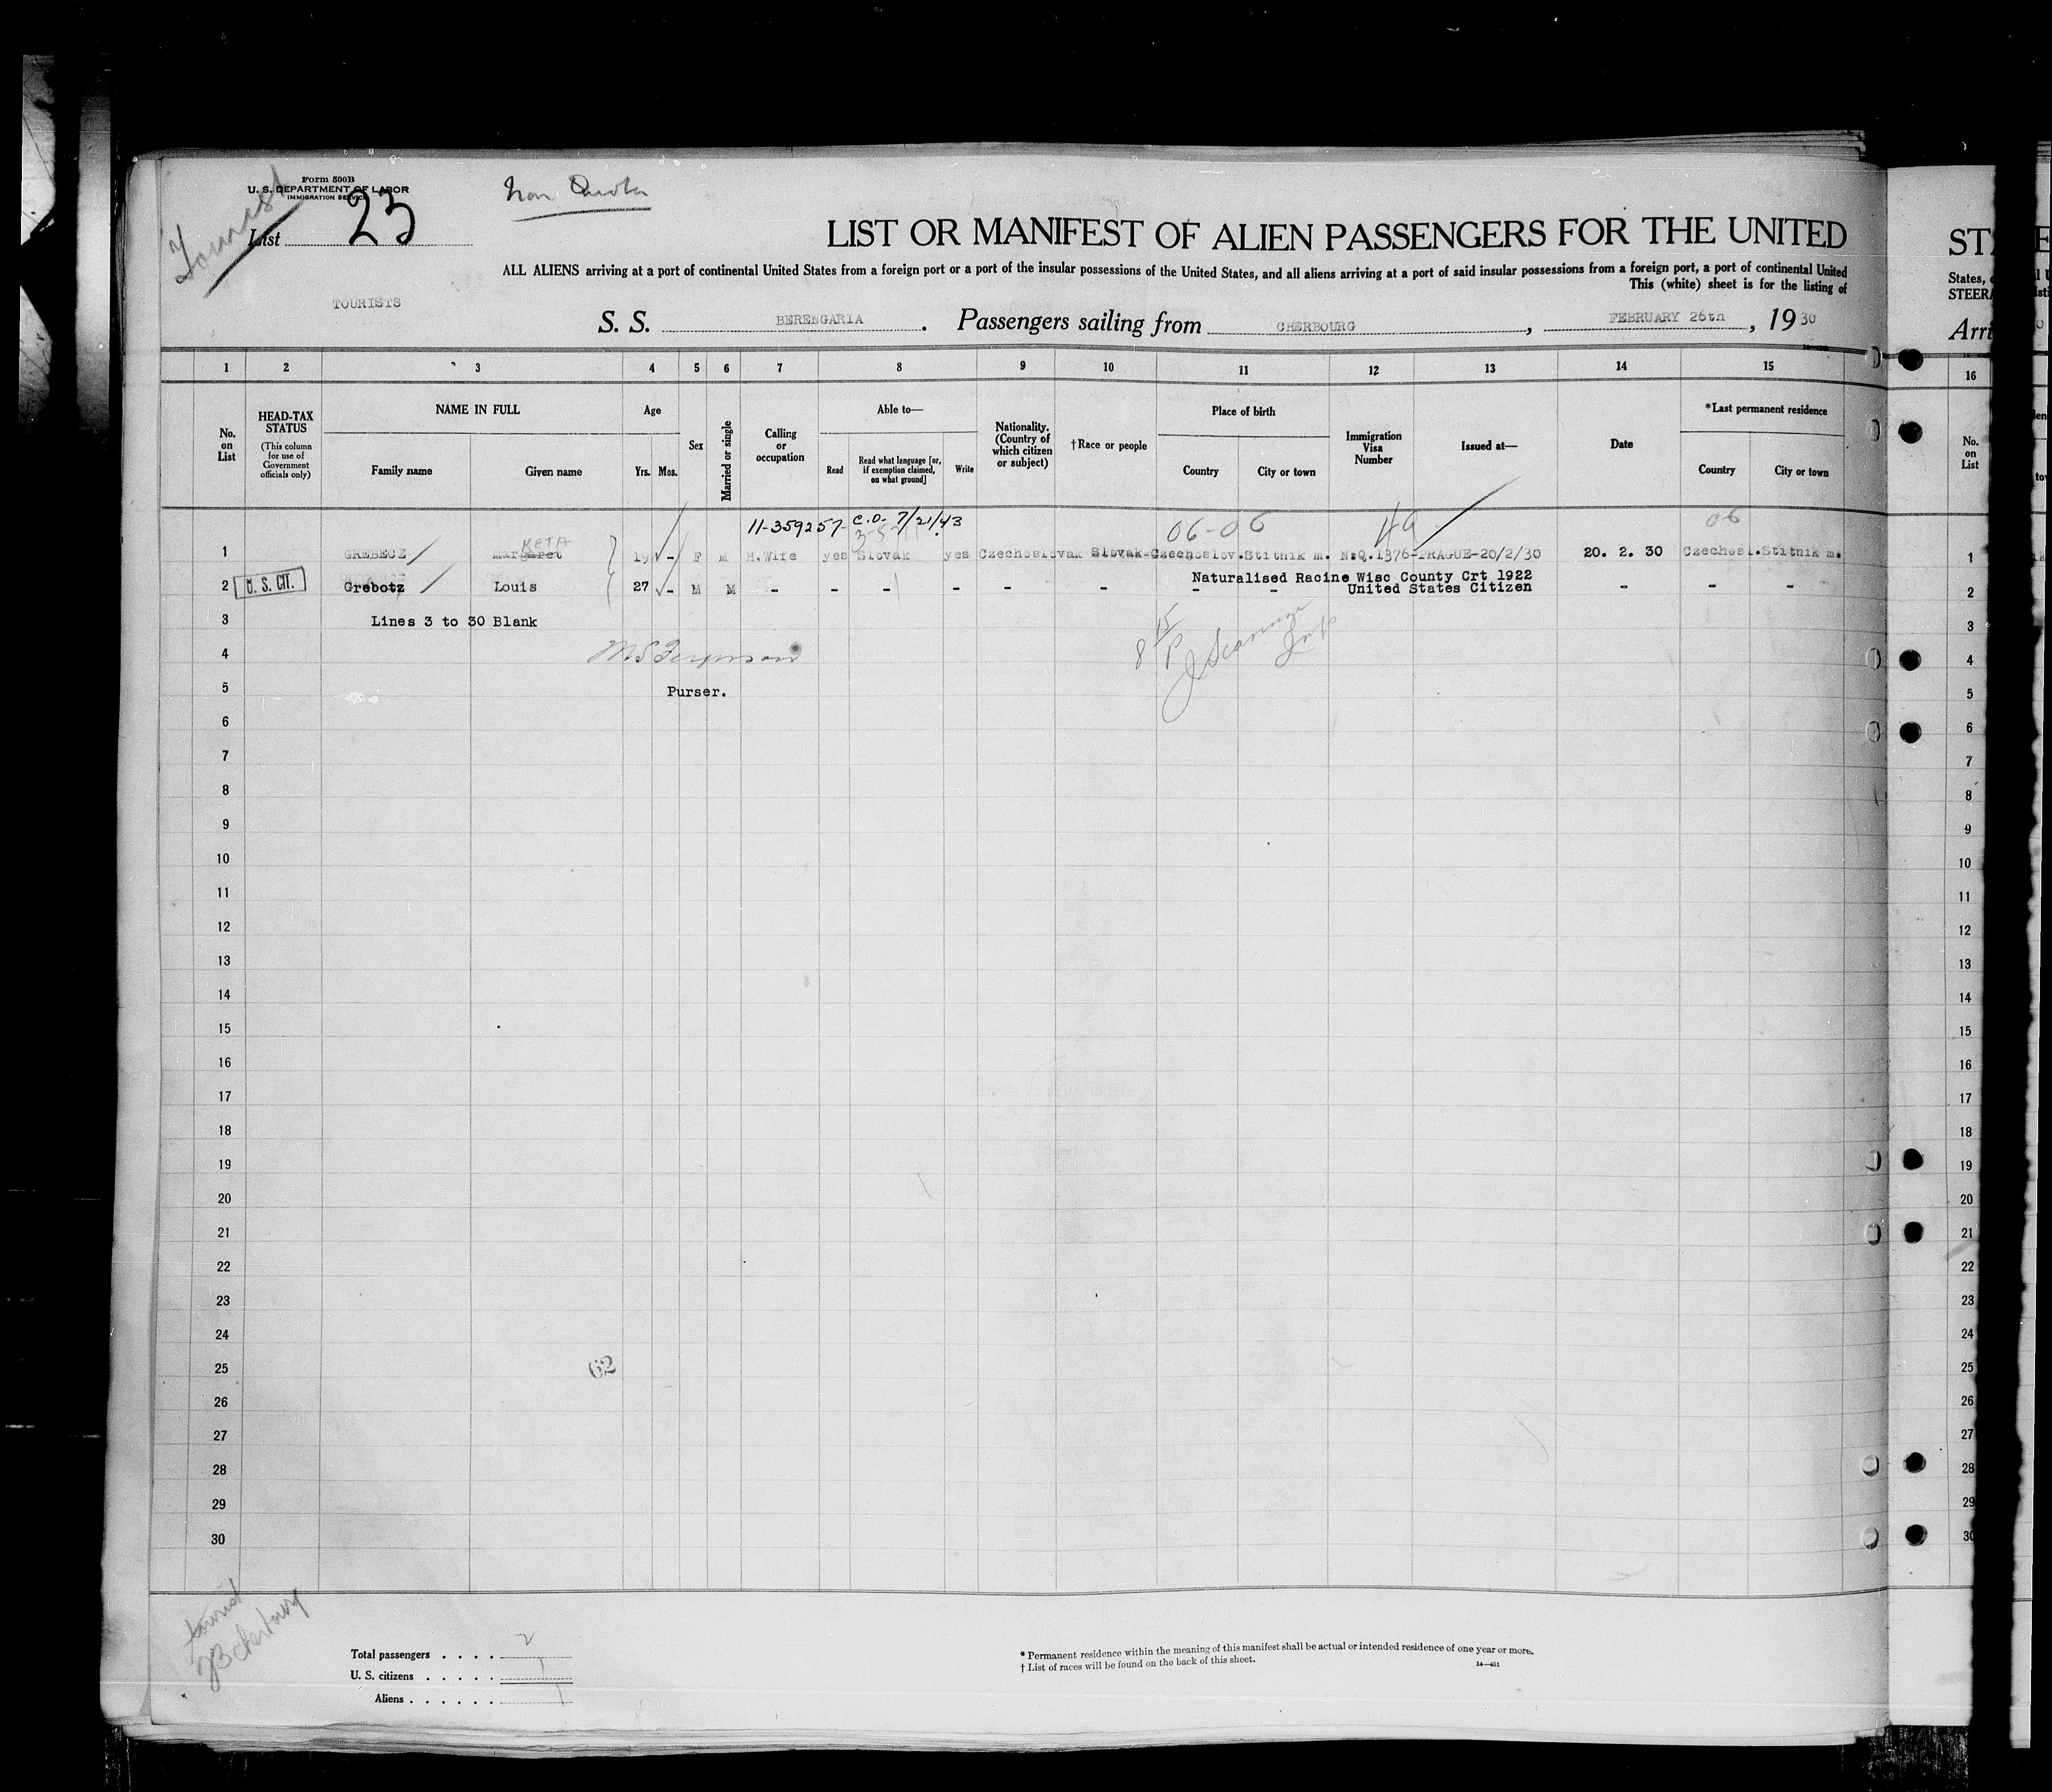 Form 500B
U. S. DEPARTMENT OF LABOR
IMMIGRATION SERVICE
Tourist
List 23
Non Quota
LIST OR MANIFEST OF ALIEN PASSENGERS FOR THE UNITED
ALL ALIENS arriving at a port of continental United States from a foreign port or a port of the insular possessions of the United States, and all aliens arriving at a port of said insular possessions from a foreign port, a port of continental United
This (white) sheet is for the listing of
TOURISTS
S. S. BERENGARIA . Passengers sailing from CHERBOURG , FEBRUARY 26th , 19 30
STA
States,
STEERA
Arri
1 2 3 4 5 6 7 8 9 10 11 12 13 14 15 16
No. on List
HEAD-TAX STATUS
(This column for use of Government officials only)
NAME IN FULL
Family name Given name
Age
Yrs. Mos.
Sex
Married or single
Calling or occupation
Able to—
Read
Read what language [or, if exemption claimed, on what ground]
Write
Nationality. (Country of which citizen or subject)
†Race or people
Place of birth
Country City or town
Immigration Visa Number
Issued at—
Date
*Last permanent residence
Country City or town
No. on List
11-359257- C.O. 7/21/43
06-06 06
KETA
1 GREBECZ Margaret 19 - F M H.Wife yes Slovak yes Czechoslovak Slovak-Czechoslov.Stitnik m. N.Q.1376-PRAGUE-20/2/30 20. 2. 30 Czechosl.Stitnik m. 1
Naturalised Racine Wisc County Crt 1922
2 U. S. CIT. Grebotz Louis 27 - M M - - - - - - - - United States Citizen - - - 2
3 Lines 3 to 30 Blank 3
4 4
5 Purser. 5
6 6
7 7
8 8
9 9
10 10
11 11
12 12
13 13
14 14
15 15
16 16
17 17
18 18
19 19
20 20
21 21
22 22
23 23
24 24
25 62 25
26 26
27 27
28 28
29 29
30 30
tourist
Total passengers . . . . 2
U. S. citizens . . . . . 1
Aliens . . . . . . 1
* Permanent residence within the meaning of this manifest shall be actual or intended residence of one year or more.
† List of races will be found on the back of this sheet.